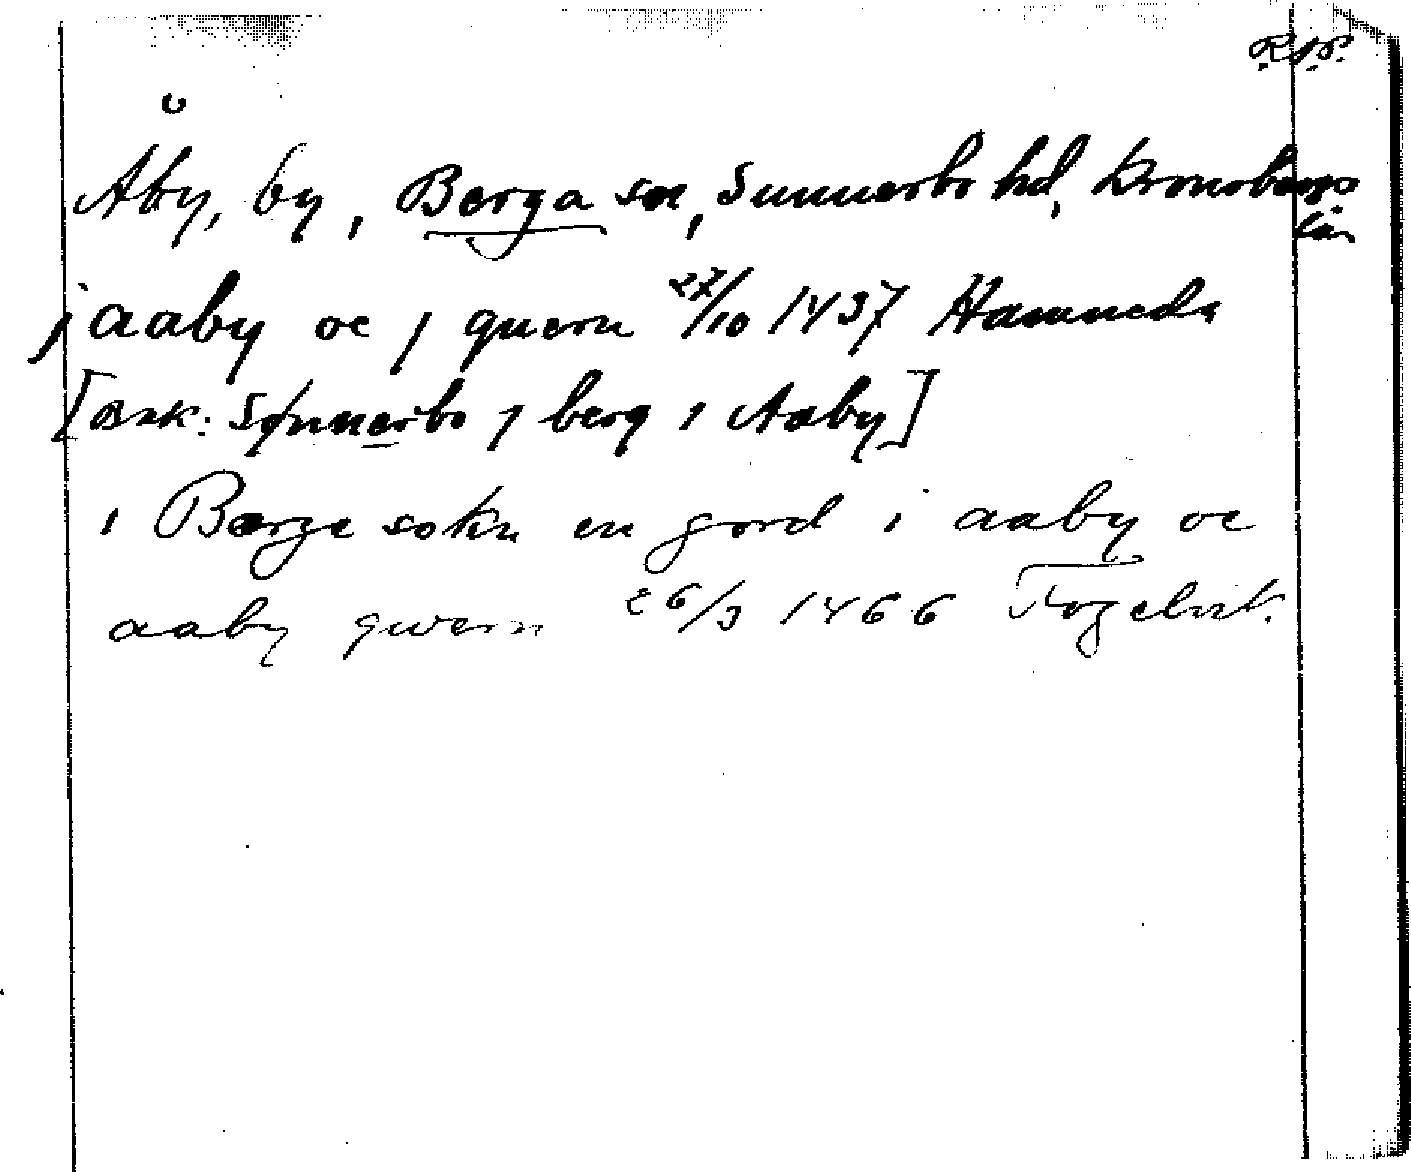 R.A.P.
Åby, by, Berga sn, Sunnerbo hd, Kronobergs
län
j aaby oc j quern 27/10 1437 Hamneda
[Bak: Synnerbo j berg i Aaby]
i Berge sokn en gord i aaby oc
aaby qwern 26/3 1466 Fogelvik.